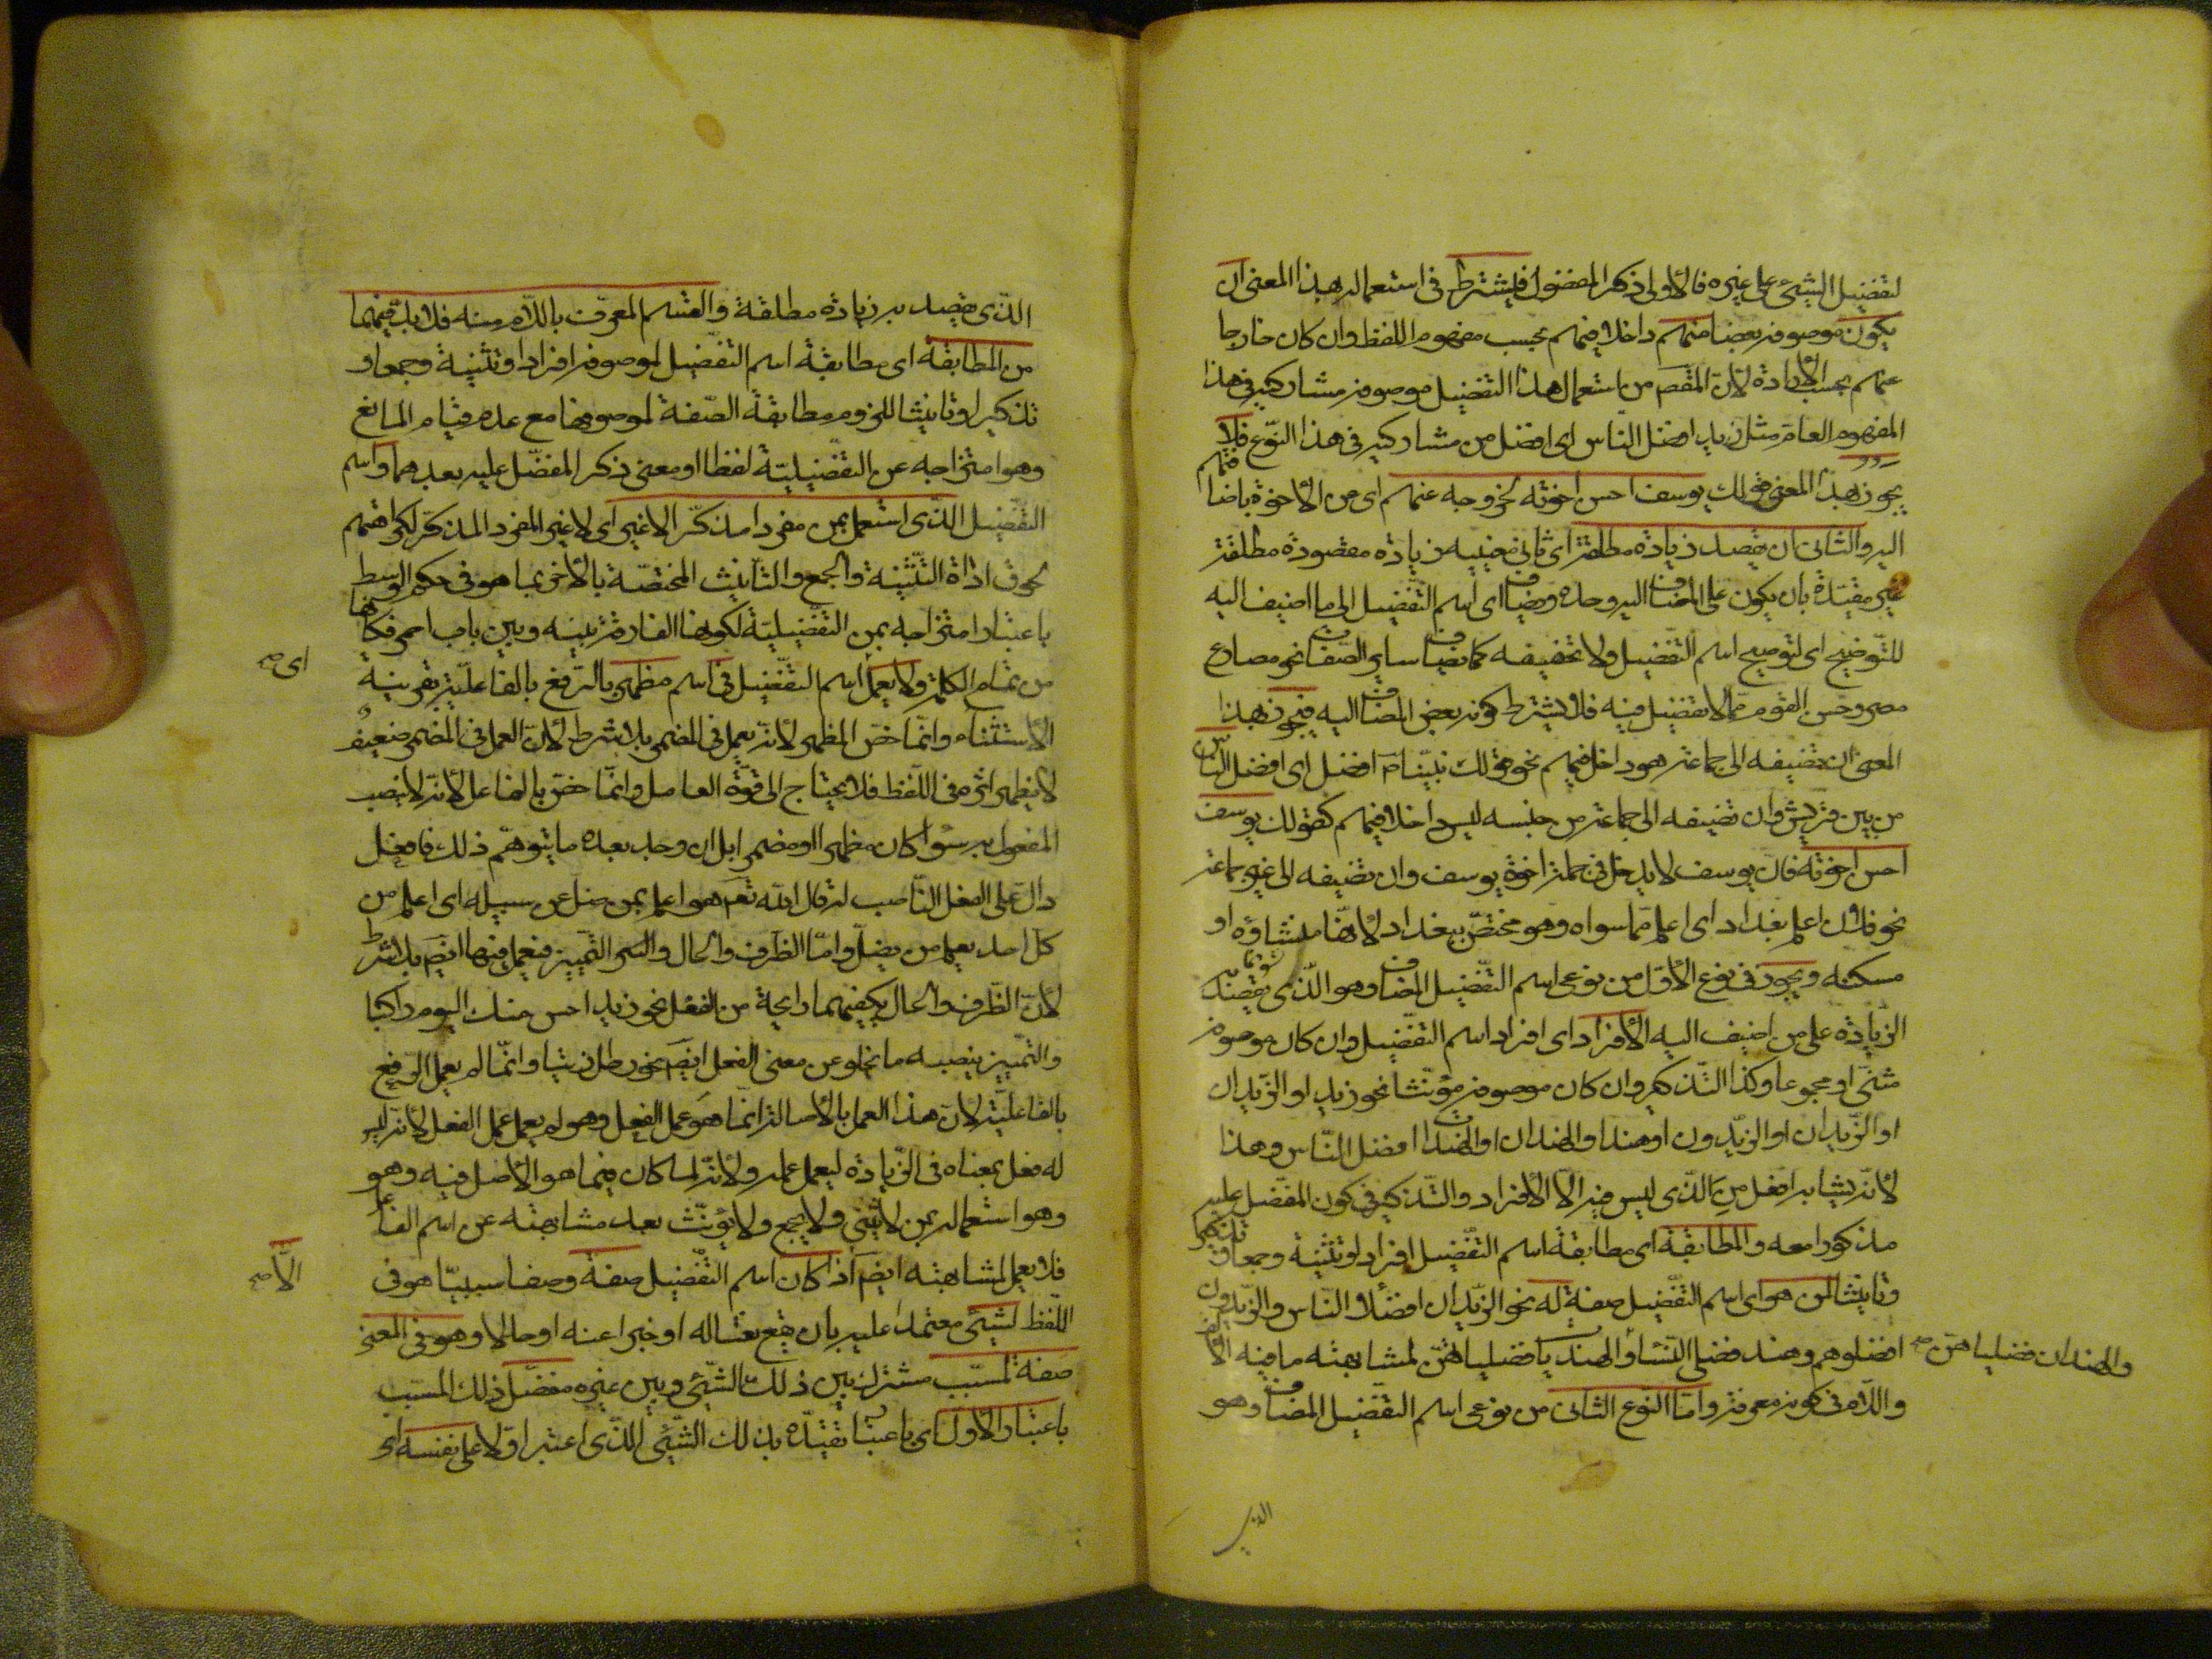 لتفضيل الشيئ على غيره فالاولى ذكر المفضول فيشترط فى استعماله بهذا المعنى ان
يكون موصوفه بعضا منهم داخلا فيهم بحسب مفهوم اللفظ وان كان خارجا
عنهم بحسب الارادة لانّ المقصَ من استعمال هذا التفضيل موصوفه مشاركيه فى هذا
المفهوم العام مثل زيد افضل الناس اى افضل من مشاركيه فى هذا النّوع فلا
يجوز بهذا المعنى قولك يوسف احسن اخوته لخروجه عنهم اى من الأخوة باضافتهم
اليه والثانى ان يقصد زيادة مطلقة اى ثانى معنييه زيادة مقصودة مطلقة
غير مقيّدة بان يكون على المضاف اليه وحده ويضاف اى اسم التّفضيل الى ما اضيف اليه
للتّوضيح اى لتوضيح اسم التّفضيل ولا تخفيفه كما يضاف ساير الصّفات نحو مصارع
مصر وحسن القوم ممّا لا تفضيل فيه فلا يشترط كونه بعض المضاف اليه فيجوز بهذا
المعنى ان تضيفه الى جماعة هو داخل فيهم نحو قولك نبيّنا صَ افضل اى افضل الناس
من بين قريش وان تضيفه الى جماعة من جنسه ليس داخلا فيهم كقولك يوسف
احسن اخوته فان يوسف لا يدخل فى جملة اخوة يوسف وان تضيفه الى غير جماعة
نحو فلان اعلم بغداد اى اعلم ممّا سواه وهو مختصّ ببغداد لأنّها منشاؤه او
مسكنه ويجوز فى نوع الأوّل من نوعى اسم التّفضيل المضاف وهو الّذى يقصد به
الزّيادة على من اضيف اليه الأفراد اى افراد اسم التّفضيل وان كان موصوفه
مثنّى او مجموعا وكذا التّذكير وان كان موصوفه مؤنّثا نحو زيد او الزّيدان
او الزّيدان او الزيّدون او هند او الهندان او الهندات افضل النّاس وهذا
لأنّه يشابه افعل مِن الّذى ليس فيه الّا الأفراد والتّذكير فى كون المفضّل عليه
مذكورا معه والمطابقة اى مطابقة اسم التّفضيل افرادا وتثنية وجمعا وتذكيرا
وتانيثا لمن هو اى اسم التّفضيل صفة له نحو الزّيدان افضلا النّاس والزّيدون
افضلوهم وهند فضلى النّساء والهندات فضلياتهنّ لمشابهته ما فيه الألف
والهندان فضلياهنّ صح
واللّام فى كونه معرفة وامّا النّوع الثانى من نوعى اسم التّفضيل المضاف وهو
الذى
الّذى يقصد به زيادة مطلقة والقسم المعرّف باللّام منه فلا بدّ فيهما
من المطابقة اى مطابقة اسم التّفضيل لموصوفه افرادا وتثنية وجمعا و
تذكيرا وتانيثا للزوم مطابقة الصّفة لموصوفها مع عدم قيام المانع
وهو امتزاجه عن التّفضيليّة لفظا او معنى ذكر المفضّل عليه بعدهما واسم
التّفضيل الّذى استعمل بمن مفرد مذكّر الا غير اى لا غير المفرد المذكّر لكراهتهم
لحوق اداة التّثنية والجمع والتّانيث المختصّة بالأخر بما هو فى حكم الوسط
باعتبار امتزاجه بمن التّفضيليّة لكونها الفارقة بينه وبين باب احمر فكانها
من تمام الكلمة ولا يعمل اسم التّفضيل فى اسم مظهر بالرّفع بالفاعليّة بقرينة
اى صح
الأستثناء وانّما خصّ المظهر لأنّه يعمل فى المضمر بلا شرط لأنّ العمل فى المضمر ضعيف
لا يظهر اثره فى اللّفظ فلا يحتاج الى قوّة العامل وانّما خصّ بالفاعل لأنّه لا ينصب
المفعول به سواء كان مظهرا او مضمرا بل ان وجد بعده ما يتوهّم ذلك فافعل
دالّ على الفعل النّاصب له قال الله تعَ هو اعلم بمن ضلّ عن سبيله اى اعلم من
كلّ احد يعلم من يضلّ وامّا الظّرف والحال والتّمييز فيعمل فيها ايضَ بلا شرط
لأنّ الظّرف والحال يكفيهما رايحة من الفعل نحو زيد احسن منك اليوم راكبا
والتّمييز ينصبه ما يخلو عن معنى الفعل ايضَ نحو رطل زيتا وانّما لم يعمل الرّفع
بالفاعليّة لأنّ هذا العمل بالأصالة انّما هو عمل الفعل وهو لم يعمل عمل الفعل لأنّه ليس
له فعل بمعناه فى الزّيادة ليعمل عمله ولأنّه لما كان فيما هو الأصل فيه وهو
وهو استعماله بمن لا يثنّى ولا يجمع ولا يؤنّث بعد مشابهته عن اسم الفاعل
فلا يعمل لمشابهته ايضَ اذا كان اسم التّفضيل صفة وصفا سببيّا هو فى
الّا صح
اللّفظ لشيئ معتمدا عليه بان يقع نعتا له او خبرا عنه او حالا وهو فى المعنى
صفة لمسبّب مشترك بين ذلك الشّيئ وبين غيره مفضّل ذلك المسبّب
باعتبار الأوّل اى باعتبار تقيّده بذلك الشّيئ الّذى اعتبر اوّلا على نفسه اى